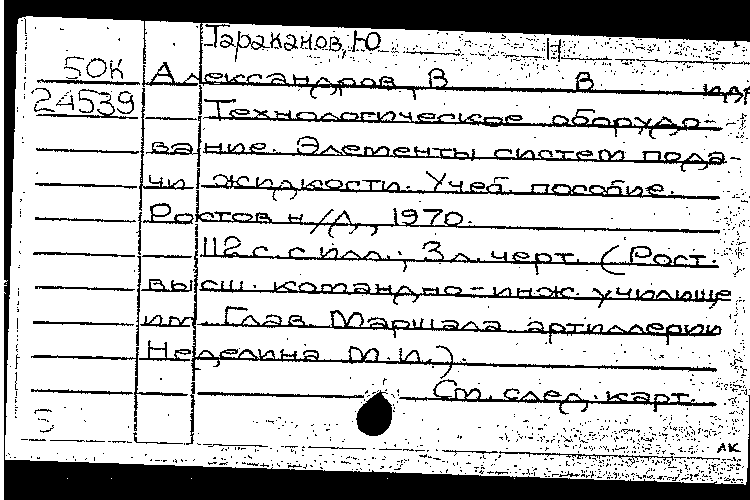 Тараканов, Ю
50К Александров, В В и др
24539 Технологическое оборудо-
вание. Элементы систем пода-
чи жидкости. Учеб. пособие.
Ростов н/Д, 1970.
112 с. с илл.; 3 л. черт. (Рост.
высш. командно-инж. училище
им. Глав. Маршала артиллерии
Неделина М.И.).
См. след. карт.
АК